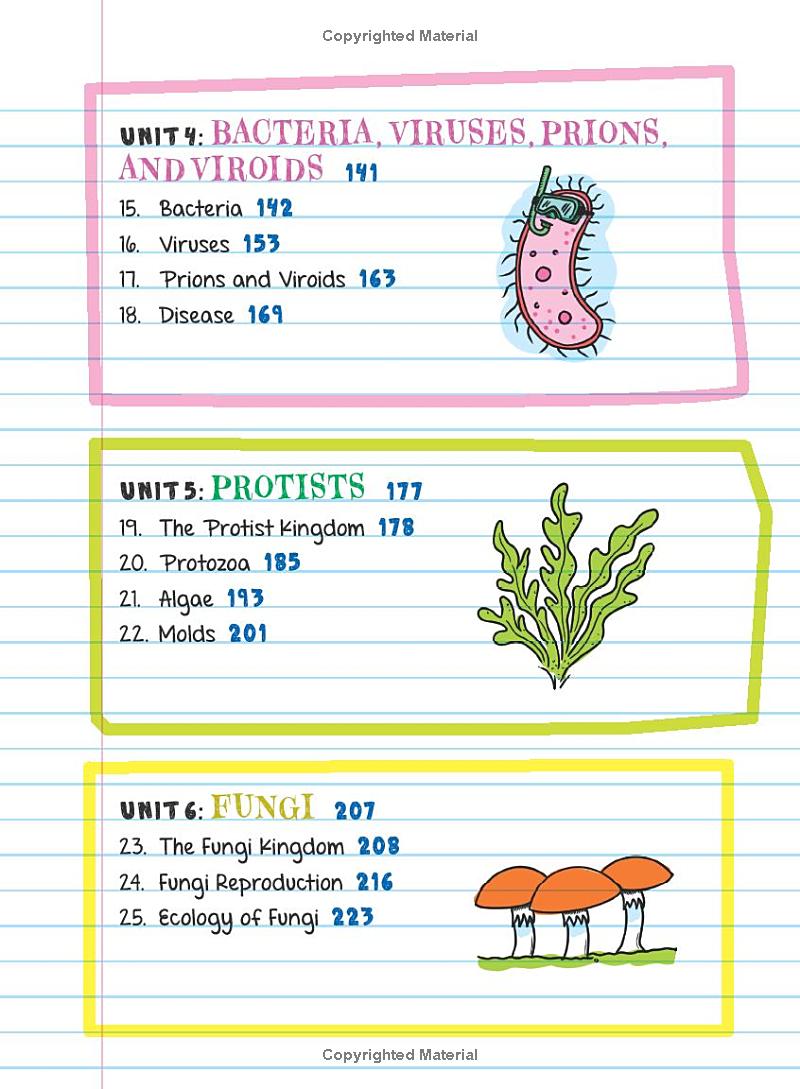 Copyrighted Material
UNIT 4: BACTERIA, VIRUSES, PRIONS,
AND VIROIDS 141
15. Bacteria 142
16. Viruses 153
17. Prions and Viroids 163
18. Disease 169
UNIT 5: PROTISTS 177
19. The Protist Kingdom 178
20. Protozoa 185
21. Algae 193
22. Molds 201
UNIT 6: FUNGI 207
23. The Fungi Kingdom 208
24. Fungi Reproduction 216
25. Ecology of Fungi 223
Copyrighted Material